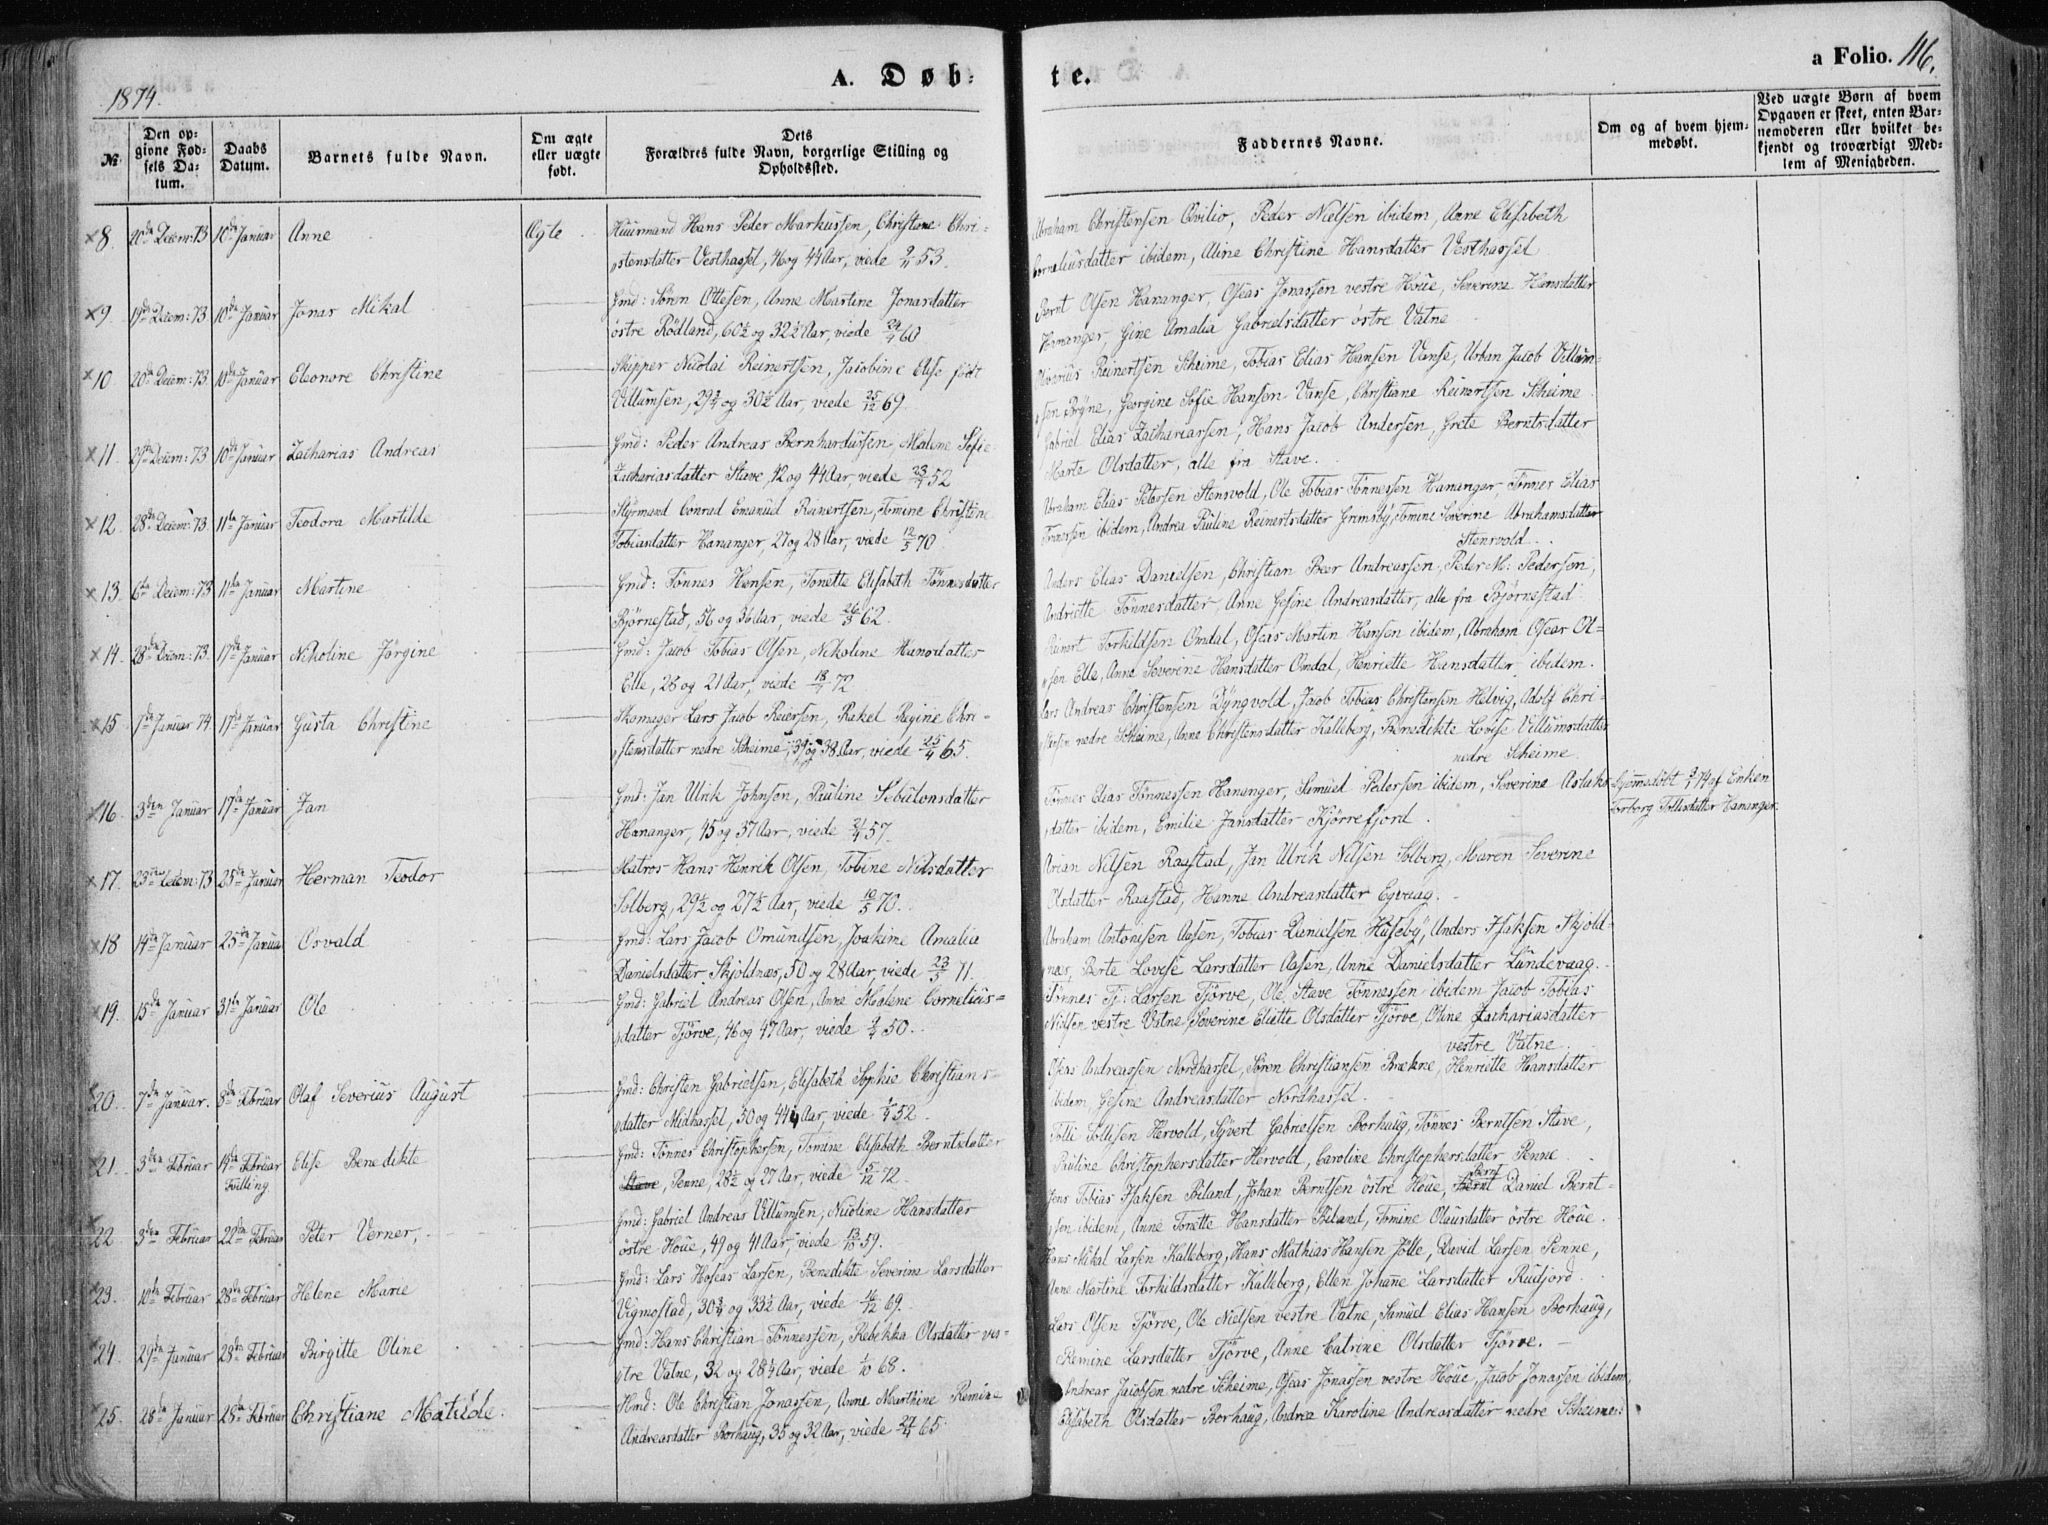 A. Døb-
te.
a Folio. 116.
1874.
No.
Den opgivne Fødsels Datum.
Daabs Datum.
Barnets fulde Navn.
Om ægte eller uægte født.
Dets Forældres fulde Navn, borgerlige Stilling og Opholdssted.
Faddernes Navne.
Om og af hvem hjemmedøbt.
Ved uægte Børn af hvem Opgaven er skeet, enten Barnemoderen eller hvilket bekjendt og troværdigt Medlem af Menigheden.
8. 20de Decem: 73 10de Januar Anne Ægte Huusmand Hans Peder Markussen, Christine Chri-
stensdatter Vesthassel, 46 og 44 Aar, viede 53.
Abraham Christensen Qvilio, Peder Nielsen ibidem, Anne Elisabeth
Corneliusdatter ibidem, Aline Christine Hansdatter Vesthassel
9. 19de Decem: 73 10de Januar Jonas Mikal Gmd: Sören Ottesen, Anne Martine Jonasdatter
östre Rödland, 60½ og 32½ Aar, viede 24/4 60
Bernt Olsen Hananger, Oseas Jonassen vestre Höue, Severine Hansdatter
Hananger, Gine Amalia Gabrielsdatter östre Vatne
10. 20de Decem: 73. 10de Januar Eleonore Christine Skipper Nicolai Reinertsen, Jacobine Elise födt
Villumsen, 29¾ og 30½ Aar, viede 25/12 69.
Reinertsen Scheime, Tobias Elias Hansen Vanse, Urban Jacob Villum-
sen Brÿne, Georgine Sofie Hansen Vanse, Christiane Reinertsen Scheime.
11. 29de Decem: 73 10de Januar Zacharias Andreas Gmd: Peder Andreas Bernhardusen, Malene Sofie
Zachariasdatter Stave, 42 og 44 Aar, viede 23/4 52
Gabriel Elias Zachariassen, Hans Jacob Andersen, Grete Berntsdatter
Marte Olsdatter, alle fra Stave.
12. 28de Decem: 73 11te Januar Teodora Martilde Styrmand Conrad Emanuel Reinertsen, Tomine Christine
Tobiasdatter Hananger, 27 og 28 Aar, viede 12/5 70.
Abraham Elias Petersen Stensvold, Ole Tobias Tönnessen Hananger, Tönnes Elias
Tönnessen ibidem, Andrea Pauline Reinertsdatter Grimsbÿ, Tomine Severine Abrahamsdatter
Stensvold.
13. 6te Decem: 73 11te Januar Martine Gmd: Tönnes Hansen, Tonette Elisabeth Tönnesdatter
Björnestad, 56 og 36 Aar, viede 26/5 62.
Anders Elias Danielsen, Christian Beer Andreassen, Peder M: Pedersen,
Andriette Tönnesdatter, Anne Gesine Andreasdatter, alle fra Björnestad
14. 28de Decem: 73. 17de Januar Nikoline Jörgine Gmd: Jacob Tobias Olsen, Nikoline Hansdatter
Elle, 28 og 21 Aar, viede 18/4 72.
Reinert Torkildsen Omdal, Oseas Martin Hansen ibidem, Abraham Osear Ol-
sen Elle, Anne Severine Hansdatter Omdal, Henriette Hansdatter, ibidem.
15 1de Januar 74. 17de Januar Gusta Christine Skomager Lars Jacob Reiersen, Rakel Regine Chri-
stensdatter nedre Scheime, 39 og 38 Aar, viede 25/4 65.
Lars Andreas Christensen Dÿngvold, Jacob Tobias Christensen Helvig, Adolf Chri-
stensen nedre Scheime, Anne Christensdatter Kalleberg, Benedikte Lovise Villumsdatter
nedre Scheime.
16. 3den Januar 17de Januar Jan Gmd: Jan Ulrik Johnsen, Pauline Sebulonsdatter
Hananger, 45 og 37 Aar, viede 57.
Tönnes Elias Tönnessen Hananger, Samuel Pedersen ibidem, Severine Aslaks-
datter ibidem, Emilie Jansdatter Kjörrefjord.
Hjemmedöbt 74 af Enken
Torborg Tollisdatter Hananger
17. 23de Decem: 73 25de Januar Herman Teodor Matros Hans Henrik Olsen, Tobine Nilsdatter
Solberg, 29½ og 27½ Aar, viede 10/5 70.
Arian Nilsen Raastad, Jan Ulrik Nilsen Solberg, Maren Severine
Olsdatter Raastad, Hanne Andreasdatter Egvaag.
18 14de Januar 25de Januar Osvald Gmd: Lars Jacob Omundsen, Joakime Amalia
Danielsdatter Skjoldnæs, 50 og 28 Aar, viede 23/5 71.
Abraham Antonisen Aasen, Tobias Danielsen Husebÿ, Anders Isaksen Skjold-
næs, Berte Lovise Larsdatter Aasen, Anne Danielsdatter Lundevaag.
19. 15de Januar 31te Januar Ole Gmd: Gabriel Andreas Olsen, Anne Malene Cornelius-
datter Tjörve, 46 og 47 Aar, viede 50.
Tönnes Tj: Larsen Tjörve, Ole Stave Tönnessen ibidem Jacob Tobias
Nielsen vestre Vatne, Severine Eliette Olsdatter Tjörve, Oline Zachariasdatter
vestre Vatne.
20. 7de Januar. 8de Februar Olaf Severius August Gmd: Christen Gabrielsen, Elisabeth Sophie Christians-
datter Midhassel, 50 og 44 Aar, viede 52.
Oseas Andreassen Nordhassel, Sören Christiansen Brekne, Henriette Hansdatter
ibidem, Gesine Andreasdatter Nordhassel.
21. 3den Februar 14de Februar Elise Benedikte Gmd: Tönnes Christophersen, Tomine Elisabeth Berntsdatter
Tvilling.
Stave, Penne, 28½ og 27 Aar, viede 5/12 72.
Tolli Tollisen Hervold, Sÿvert Gabrielsen Borhaug, Tönnes Berntsen Stave,
Pauline Christophersdatter Hervold, Caroline Christophersdatter Penne.
22. 3den Februar 22de Februar Peter Verner, Gmd: Gabriel Andreas Villumsen, Nicoline Hansdatter
östre Höue, 49 og 41 Aar, viede 13/10 59.
Jens Tobias Isaksen Biland, Johan Berntsen östre Höue, Bernt Daniel Bernt-
sen ibidem, Anne Tonette Hansdatter Biland, Tomine Olausdatter östre Höue.
23. 10de Februar 28de Februar Helene Marie Gmd: Lars Hoseas Larsen, Benedikte Severine Larsdatter
Vigmostad, 30¾ og 33½ Aar, viede 16/12 69.
Hans Mikal Larsen Kalleberg, Hans Mathias Hansen Jölle, David Larsen Penne,
Anne Martine Torkildsdatter Kalleberg, Ellen Johanne Larsdatter Rudjord.
24. 29de Januar 28de Februar Birgitte Oline Gmd: Hans Christian Tönnessen, Rebekka Olsdatter ves-
tre Vatne, 32 og 28¼ Aar, viede 1/10 68.
Lars Olsen Tjörve, Ole Nielsen vestre Vatne, Samuel Elias Hansen Borhaug,
Remine Larsdatter Tjörve, Anne Catrine Olsdatter Tjörve.
25. 28de Januar 28de Februar Christiane Matilde. Hmd: Ole Christian Jonassen, Anne Marthine Remine
Andreasdatter Borhaug, 35 og 32 Aar, viede 24/4 65
Andreas Jacobsen nedre Scheime, Oseas Jonassen vestre Höue, Jacob Jonassen ibidem,
Elisabeth Olsdatter Borhaug, Andrea Karoline Andreasdatter nedre Scheime.